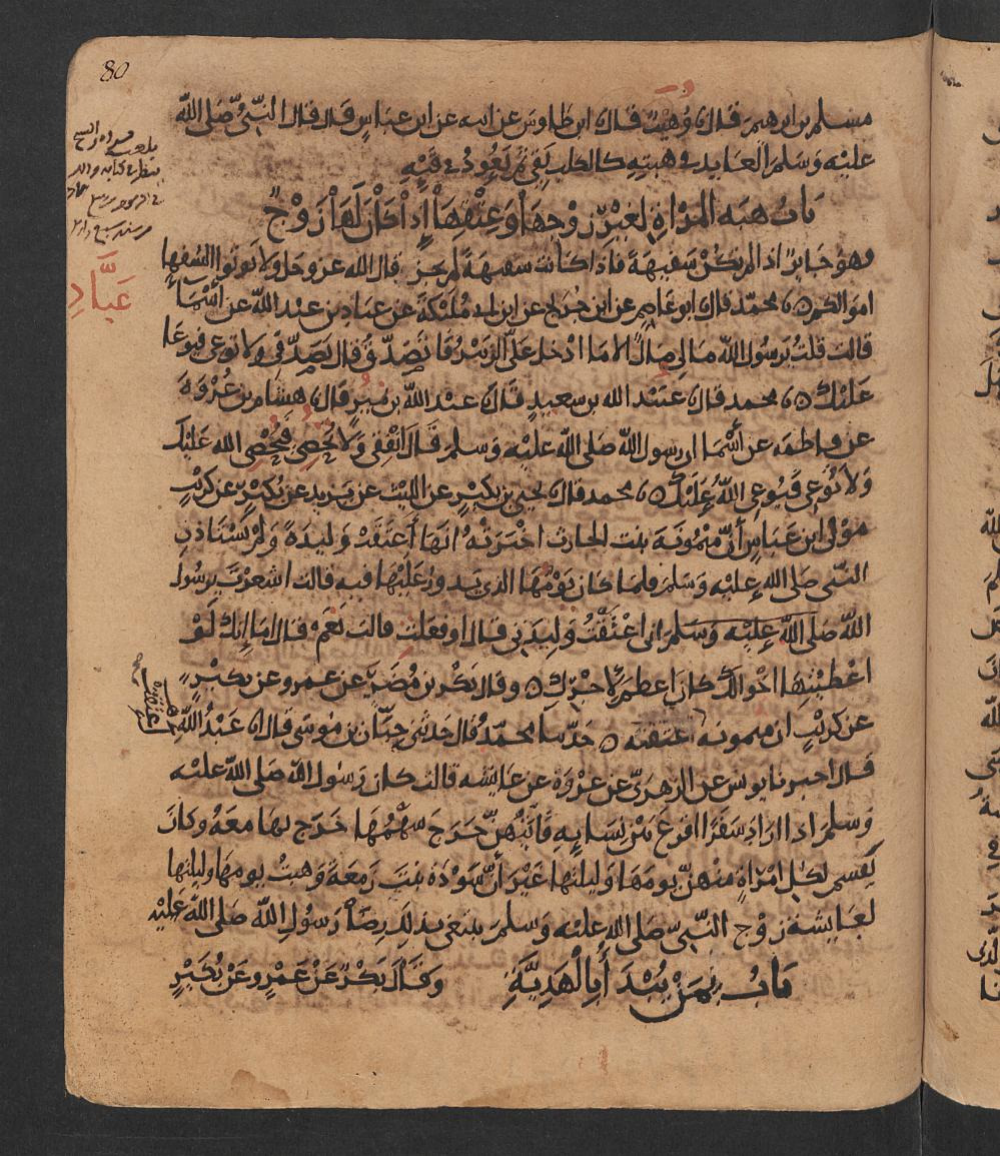 80
مسلم بن ابرهيم قال نا وهيب قال نا ابن طاوس عن ابيه عن ابن عباس قال قال النبي صلى الله
عليه وسلم العايد في هبته كالكلب يقي ثم يعود في قيه
باب هبه المراة لغير زوجها وعتقها اذا كان لها زوج
وهو جايز اذا لم تكن سفيهة فاذا كانت سفيهة لم يجز قال الله عز وجل ولا توتوا السفها
اموالكم نا محمد قال نا ابو عاصم عن ابن جريج عن ابن ابي مليكة عن عباد بن عبد الله عن اسما
قالت قلت يرسول الله مالي مال الا ما ادخل علي الزبير فاتصدق قال تصدقي ولا توعي فيوعا
عليك نا محمد قال نا عبيد الله بن سعيد قال نا عبد الله بن نمير قال نا هشام بن عروة
عن فاطمه عن اسما ان رسول الله صلى الله عليه وسلم قال انفقي ولا تحصي فيحصي الله عليك
ولا توعي فيوعي الله عليك نا محمد قال نا يحيى بن بكير عن الليث عن يزيد عن بكير عن كريب
مولى ابن عباس أن ميمونة بنت الحارث اخبرته انها أعتقت وليدة ولم تستاذن
النبي صلى الله عليه وسلم فلما كان يومها الذي يدور عليها فيه قالت اشعرت يرسول
الله صلى الله عليه وسلم اني اعتقت وليدتي قال اوفعلت قالت نعم قال اما إنك لو
اعطيتها اخوالك كان اعظم لاجرك وقال بكر بن مضر عن عمرو عن بكير
عن كريب ان ميمونه اعتقته حدثنا محمد قال حدثني حبان بن موسى قال نا عبد الله
قال اخبرنا يونس عن الزهري عن عروة عن عايشه قالت كان رسول الله صلى الله عليه
وسلم اذا اراد سفرا اقرع بين نسايه فأيتهن خرج سهمها خرج بها معه وكان
يقسم لكل امراة منهن يومها وليلتها غير أن سودة بنت زمعة وهبت يومها وليلتها
لعايشة زوج النبي صلى الله عليه وسلم يبتغي بذلك رضا رسول الله صلى الله عليه
باب بمن يبدأ بالهدية وقال بكر عن عمرو عن بكير
عباد